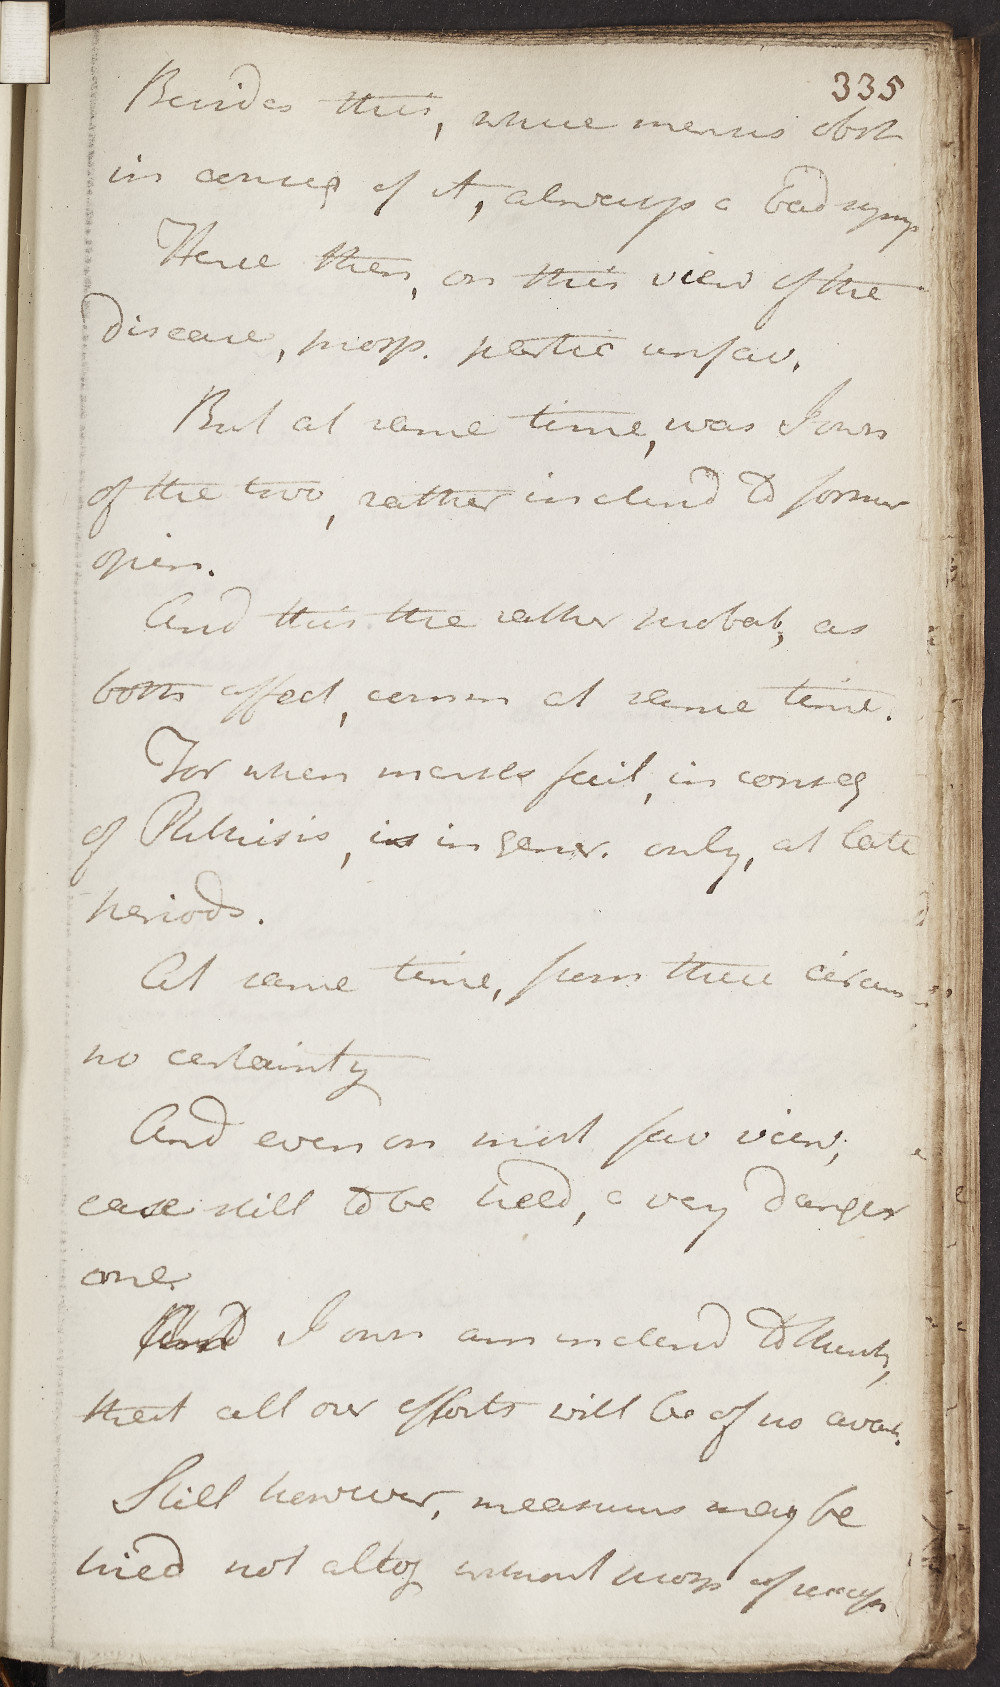 335
Besides this, where menses obst
in conseq of it, always a bad symp
Here then, on this view of the
disease, prosp. partic unfav.
But at same time, was I own
of the two, rather inclend to former
opin.
And this the rather probab, as
both affect, comm at same time.
For when menses fail, in conseq
of Phthisis, is in gener. only, at late
periods.
At same time, from these circum
no certainty
And even on most fav view,
case still to be held, a very danger
one.
And I own am inclend to think,
that all our efforts will be of no avail.
Still however, measures may be
tried not altog without prosp of recip